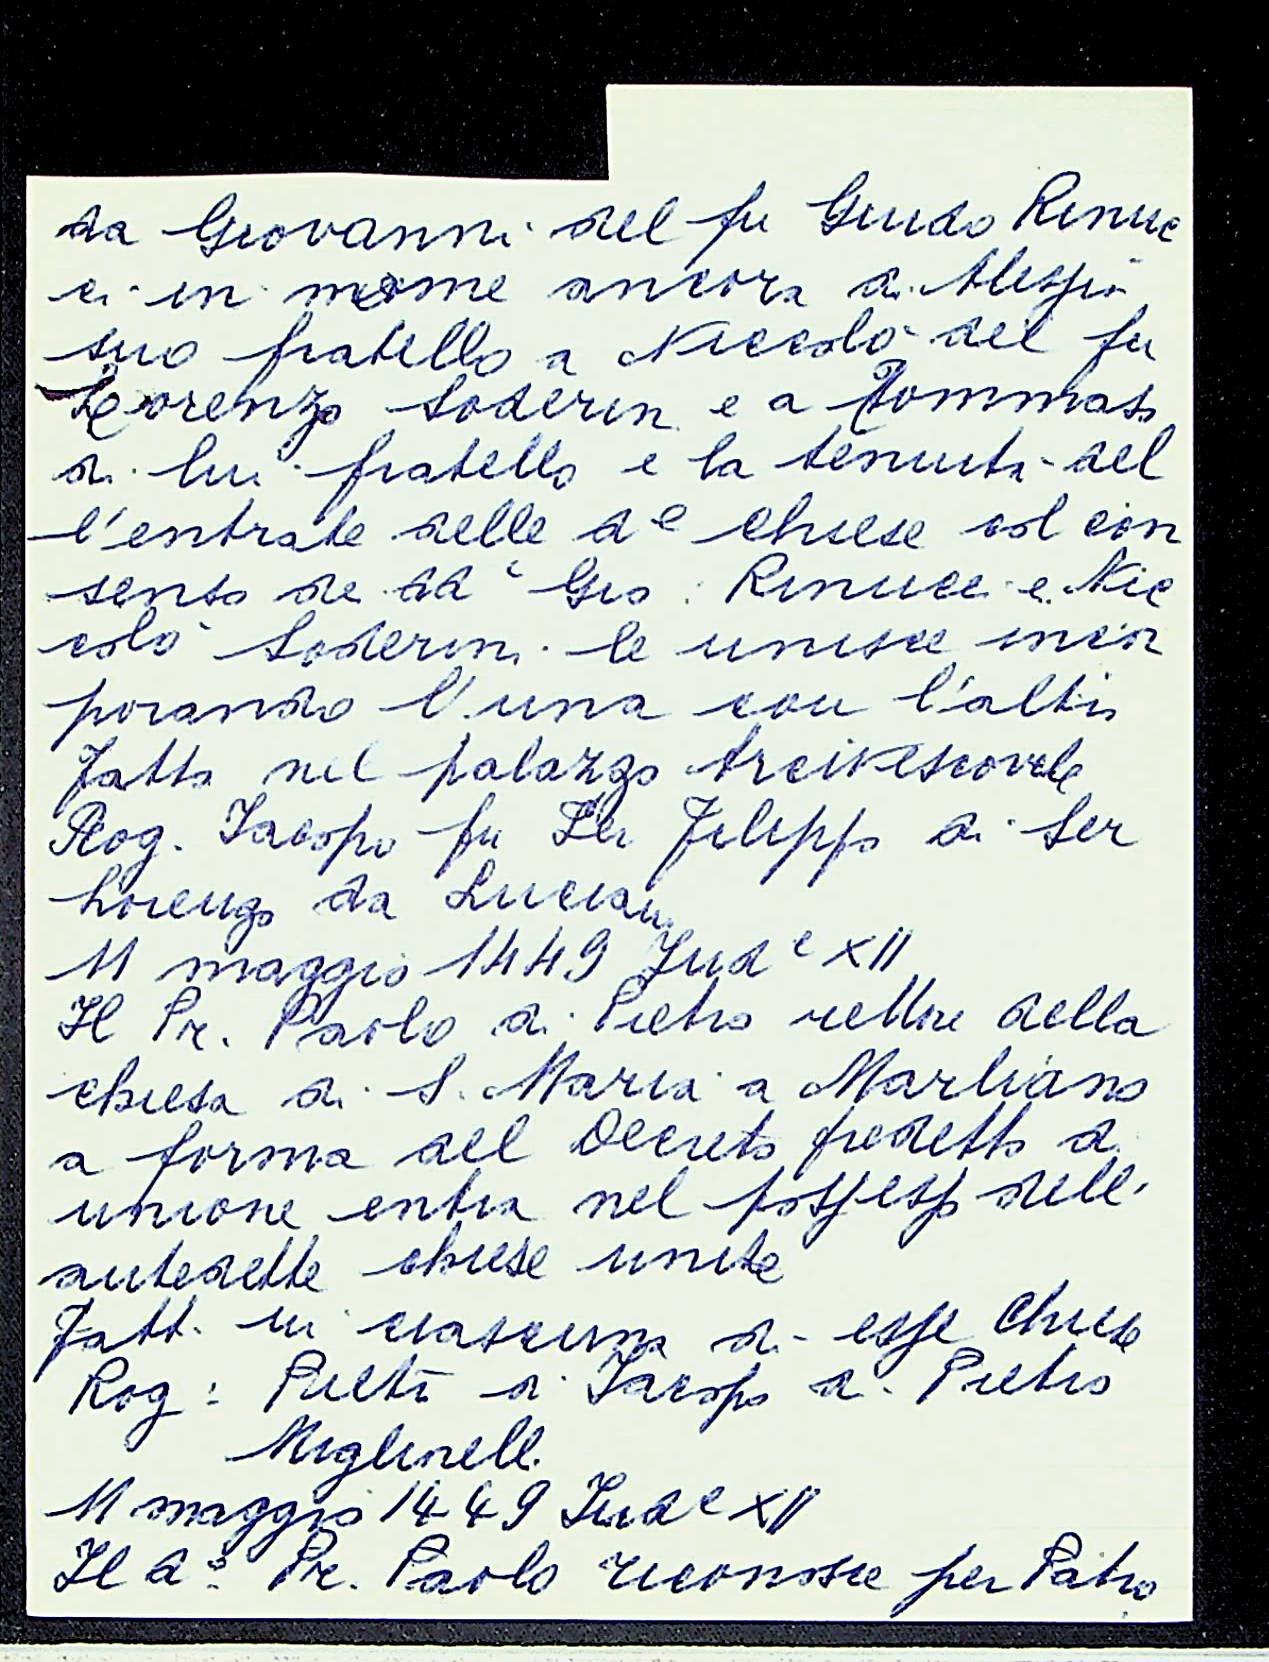 da Giovanni del fu Guido Rinuc
ci in nome ancora di Alessio
suo fratello a Niccolò del fu
Lorenzo Soderini e a Tommaso
di lui fratello e la tenuta del
l'entrate delle de Chiese col con
senso de dd Gio: Rinucci e Nic
colò Soderini le unisce incor
porando l'una con l'altra
Fatto nel palazzo Arcivescovile
Rog. Iacopo fu Ser Filippo di Ser
Lorenzo da Luciano
11 maggio 1449 Inde XII
Il Pr. Paolo di Pietro rettore della
chiesa di S. Maria a Marliano
a forma del Decreto predetto di
unione entra nel possesso dell'
antedette chiese unite
Fatt. in ciascuna di esse Chiese
Rog: Pietro di Iacopo di Pietro
Migliorelli
11 maggio 1449 Inde XII
Il do Pr. Paolo riconosce per Patro